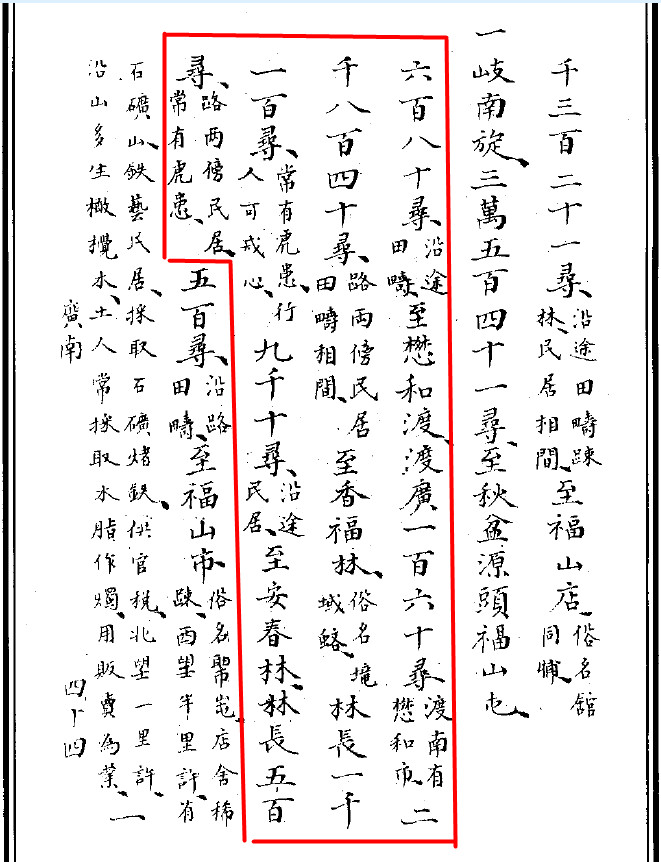 千三百二十一尋、沿途田疇踈林、民居相間、至福山店、俗名舘同𫃎
一岐南旋、三萬五百四十一尋、至秋盆源頭福山屯、
六百八十尋、沿途田疇、至懋和渡、渡廣一百六十尋、渡南有懋和市、二
千八百四十尋、路両傍民居田疇相間、至香福林、俗名境域𩺰、林長一千
一百尋、常有虎患、行人可戒心、九千十尋、沿途民居、至安春林、林長五百
尋、路两傍民居、常有虎患、五百尋、沿路田疇、至福山市、俗名幣𡹞、店舍稀踈、西望半里許、有
石礦山、鉄藝民居、採取石礦烤鉄、供官税、北望一里許、
沿山多生橄攬木、土人常採取木脂作燭、用販賣為業、一
廣南
四十四